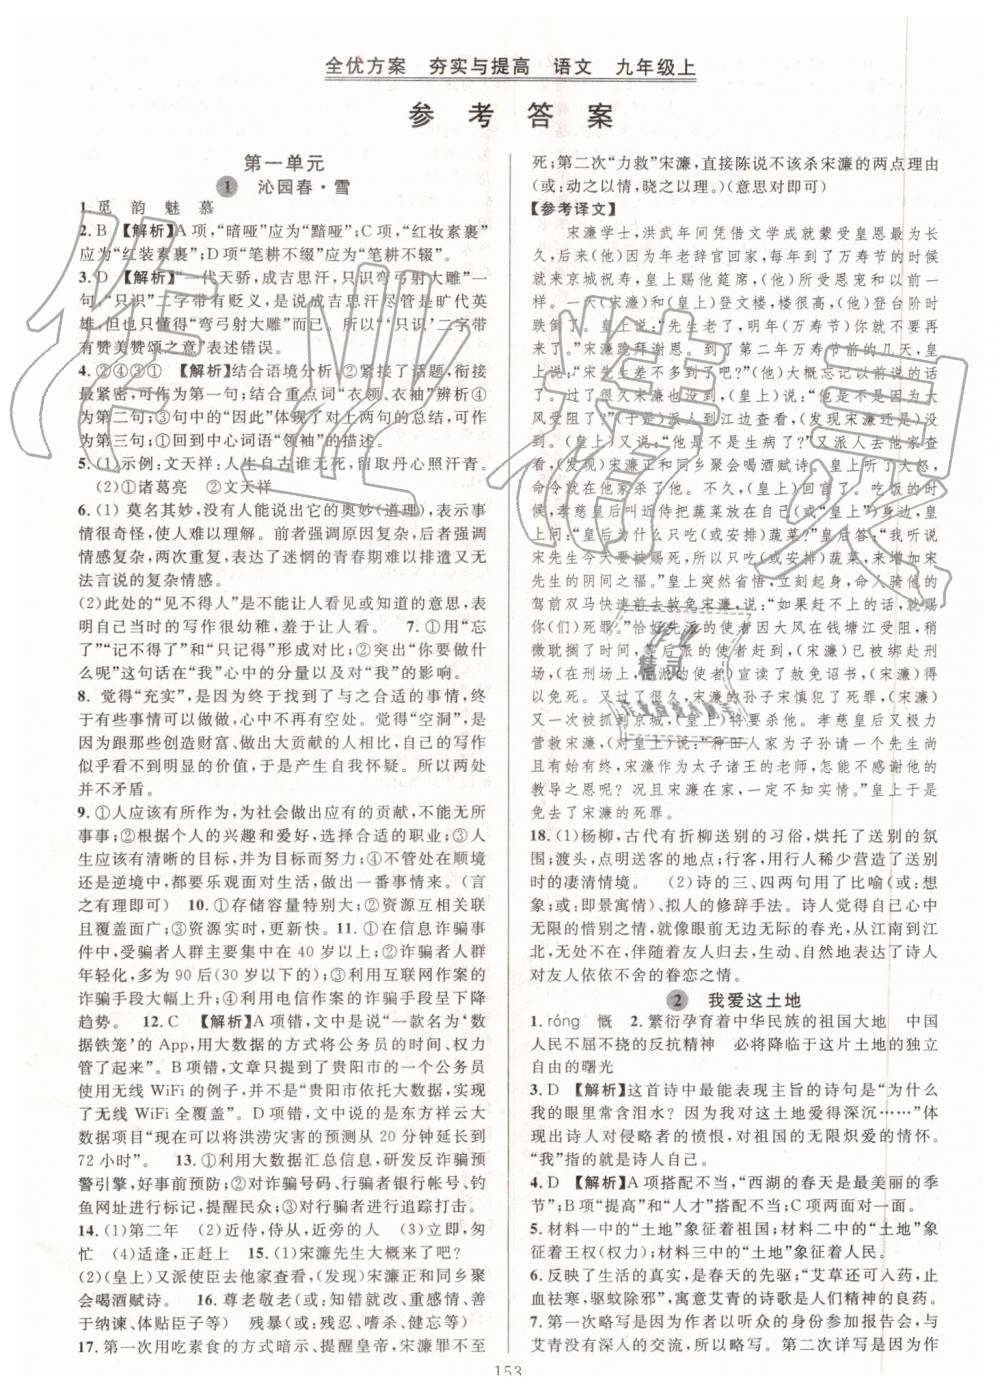 全优方案 夯实与提高 语文 九年级上
参考答案
第一单元
1 沁园春·雪
1.觅 韵 魅 慕
2.B 【解析】A项,“暗哑”应为“黯哑”;C项,“红妆素裹”
应为“红装素裹”;D项“笔耕不缀”应为“笔耕不辍”。
3.D 【解析】“一代天骄,成吉思汗,只识弯弓射大雕”一
句,“只识”二字带有贬义,是说成吉思汗尽管是旷代英
雄,但也不过懂得“弯弓射大雕”而已。所以“‘只识’二字带
有赞美赞颂之意”表述错误。
4.②④③① 【解析】结合语境分析,②紧接了话题,衔接
最紧密,可作为第一句;结合重点词“衣领、衣袖”辨析④
为第二句;③句中的“因此”体现了对上两句的总结,可作
为第三句;①回到中心词语“领袖”的描述。
5.(1)示例:文天祥:人生自古谁无死,留取丹心照汗青。
(2)①诸葛亮 ②文天祥
6.(1)莫名其妙,没有人能说出它的奥妙(道理),表示事
情很奇怪,使人难以理解。前者强调原因复杂,后者强调
情感复杂,两次重复,表达了迷惘的青春期难以排遣又无
法言说的复杂情感。
(2)此处的“见不得人”是不能让人看见或知道的意思,表
明自己当时的写作很幼稚,羞于让人看。 7.①用“忘
了”“记不得了”和“只记得”形成对比;②突出“你要做什
么呢”这句话在“我”心中的分量以及对“我”的影响。
8.觉得“充实”,是因为终于找到了与之合适的事情,
于有些事情可以做做,心中不再有空白。觉得“空洞”,是
因为跟那些创造财富、做出大贡献的人相比,自己的写作
似乎看不到明显的价值,于是产生自我怀疑。所以两处
并不矛盾。
9.①人应该有所作为,为社会做出应有的贡献,不能无所
事事;②根据个人的兴趣和爱好,选择合适的职业;③人
生应该有清晰的目标,并为目标而努力;④不管处在顺境
还是逆境中,都要乐观面对生活,做出一番事情来。(言
之有理即可) 10.①存储容量特别大;②资源互相关联
且覆盖面广;③资源实时,更新快。 11.①在信息诈骗事
件中,受骗者人群主要集中在40岁以上;②诈骗者人群
年轻化,多为90后(30岁以下);③利用互联网作案的
诈骗手段大幅上升;④利用电信作案的诈骗手段呈下降
趋势。 12.C 【解析】A项错,文中是说“一款名为‘数
据铁笼’的App,用大数据的方式将公务员的时间、权力
管了起来”。B项错,文章只提到了贵阳市的一个公务员
使用无线WiFi的例子,并不是“贵阳市依托大数据,实现
了无线WiFi全覆盖”。D项错,文中说的是东方祥云大
数据项目“现在可以将洪涝灾害的预测从20分钟延长到
72小时”。 13.①利用大数据汇总信息,研发反诈骗预
警引擎,好事前预防;②诈骗号码、行骗者银行帐号、钓
鱼网址进行数据共享,提醒民众;③对行骗者进行追踪打击。
14.(1)第二年 (2)近侍,侍从,近旁的人 (3)立即,匆
忙 (4)适逢,正赶上 15.(1)宋濂先生大概来了吧?
(2)(皇上)又派使臣去他家查看,(发现)宋濂正和同乡聚
会喝酒赋诗。 16.尊老敬老(或:知错就改、重感情、善
于纳谏、体贴臣子等) 残暴(或:残忍、嗜杀、健忘等)
17.第一次用吃素食的方式暗示、提醒皇帝,宋濂罪不至
死;第二次“力救”宋濂,直接陈说不该杀宋濂的两点理由
(或:动之以情,晓之以理。)(意思对即可)
【参考译文】
宋濂学士,洪武年间凭借文学成就蒙受皇恩最为长
久,后来因为年老辞官回家,每年到了万寿节的时候
就来京城祝寿,皇上赐他筵席,(他)所受恩宠一如往
昔。一天,(他)与(皇上)登文楼,楼很高,(他)登台阶时
跌倒了。皇上说:“先生老了,明年(万寿节)就不要再
来了。”宋濂跪拜谢恩。到了第二年万寿节前的几天,皇上
说:“宋先生差不多到了吧?”(他)大概忘记以前说的话
了。过了很久宋濂也没到,(皇上)说:“他是不是因为大
风受阻了?”(于是)派人到江边查看,(发现宋濂还是)没
到。(皇上)又说:“他是不是生病了?”又派人去他家查
看,(发现)宋濂正和同乡聚会喝酒赋诗。皇上听了大怒,
命令在他家杀了他。不久,(皇上)回宫了。吃饭的时
候,孝慈皇后叫近侍把蔬菜放在自己(或皇上)前面。
(皇上)问:“皇后为什么只吃(或安排)蔬菜?”皇后答:“我听说
宋先生今天要被赐死,所以只吃(或安排)蔬菜,来增加宋
先生的阴间万福。”皇上突然省悟,立刻起身,命人将他的
驾前双马快速前去赦免宋濂,说:“如果赶不上的话,就赐
你(们)死罪。”恰好先派的使者因大风在钱塘江受阻,稍
微耽搁了一下,等后派的使者赶到,(宋濂)已被绑赴刑
场,(在刑场上,后派的使者)宣读了赦免诏书,(宋濂)幸
免一死。又过了很久,宋濂的孙子宋慎犯了死罪,(宋濂)
又一次被抓到京城,(皇上)将要杀他。孝慈皇后又极力
营救宋濂,(对皇上)说:“种田人家为子孙请一个先生尚
且有始有终,宋濂作为太子诸王的老师,怎能忽视他的
教导之恩呢?况且宋濂在家,一定不知实情。”皇上于是
免了宋濂的死罪。
18.(1)杨柳,古代有折柳送别的习俗,烘托了送别的氛
围;渡头,点明送客的地点;行客,用行人稀少营造了送别
时的凄清情境。 (2)诗的三、四两句用了比喻(或:想
象;或:即景寓情)、拟人的修辞手法。诗人觉得自己心中
无限的惜别之情,就像眼前无边无际的春光,从江南到江
北,无处不在,伴随着友人归去,生动、大胆地表达了诗人
对友人依依不舍的眷恋之情。
2 我爱这土地
1.róng 慨 2.繁衍孕育着中华民族的祖国大地 中国
人民不屈不挠的反抗精神 必将降临于这片土地的独立
自由的曙光
3.D 【解析】这首诗中最能表现主旨的诗句是“为什么
我的眼里常含泪水? 因为我对这土地爱得深沉……”体
现出诗人对侵略者的愤恨,对祖国的无限炽爱的情怀。
“我”指的就是诗人自己。
4.D 【解析】A项搭配不当,“西湖的春天是最美丽的季
节”;B项“提高”和“人才”搭配不当;C项两面对一面。
5.材料一中的“土地”象征着祖国;材料二中的“土地”象
征着王位(权力);材料三中的“土地”象征着人民。
6.反映了生活的真实,是春天的先驱;“艾草还可入药,止
血祛寒,驱蚊除邪”,寓意艾青的诗歌是人们精神的良药。
7.第一次略写是因为作者以听众的身份参加报告会,与
艾青没有深入的交流,所以略写。第二次详写是因为作
153